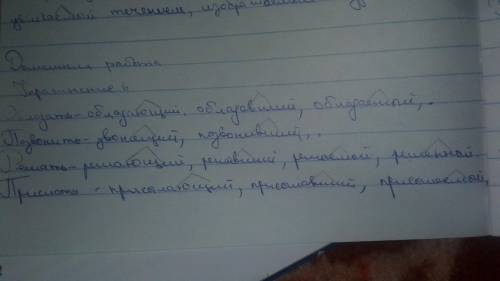 течением,
Домашняя работа
Упражнение
обладать-обладающий. обладавший, обладаемый, .
Позвонить-звонящий, позвонивший, .
Решать-решающий, решавший, решаемой, решенной
присолающий, присолавший, присолаемой,